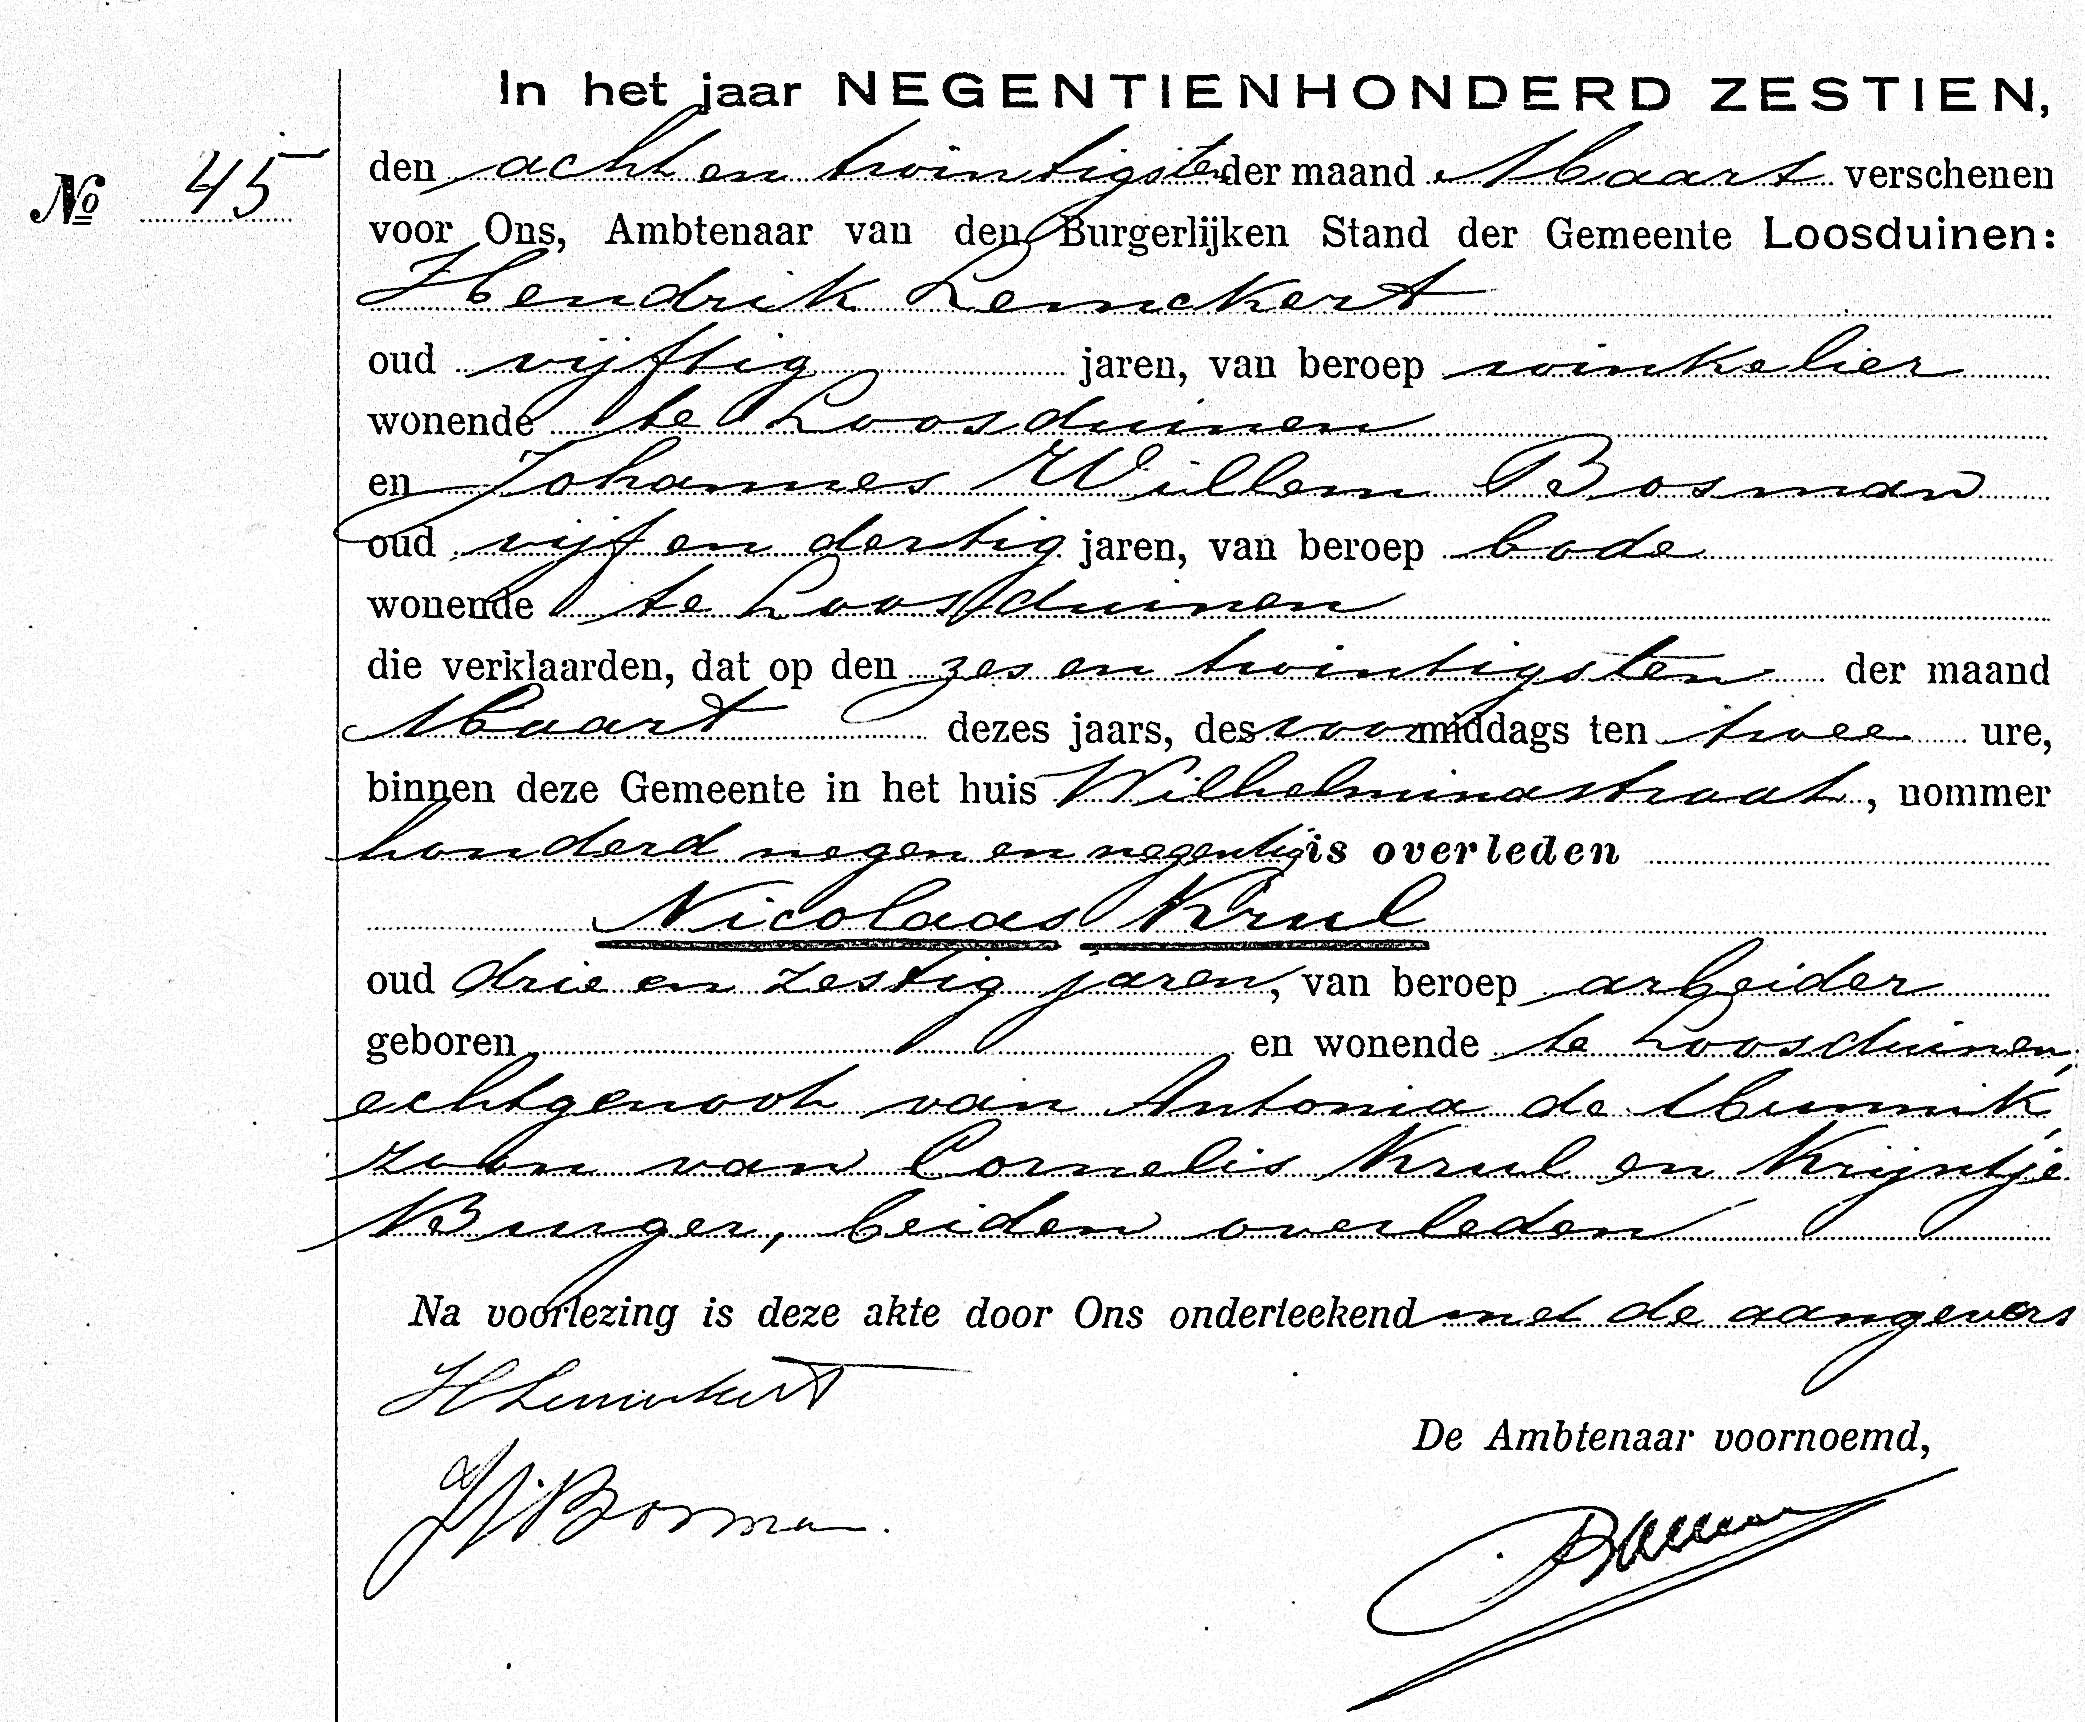 In het jaar NEGENTIENHONDERD ZESTIEN,
No 45
den acht en twintigsten der maand Maart verschenen
voor Ons, Ambtenaar van den Burgerlijken Stand der Gemeente Loosduinen:
Hendrik Lemckert
oud vijftig jaren, van beroep winkelier
wonende te Loosduinen
en Johannes Willem Bosman
oud vijf en dertig jaren, van beroep bode
wonende te Loosduinen
die verklaarden, dat op den zes en twintigsten der maand
Maart dezes jaars, des voormiddags ten twee ure,
binnen deze Gemeente in het huis Wilhelminastraat, nommer
honderd negen en negentig is overleden
Nicolaas Krul
oud drie en zestig jaren, van beroep arbeider
geboren en wonende te Loosduinen,
echtgenoot van Antonia de Munnik,
zoon van Cornelis Krul en Krijntje
Burger, beiden overleden
Na voorlezing is deze akte door Ons onderteekend met de aangevers
HLemckert
JWBosman.
De Ambtenaar voornoemd,